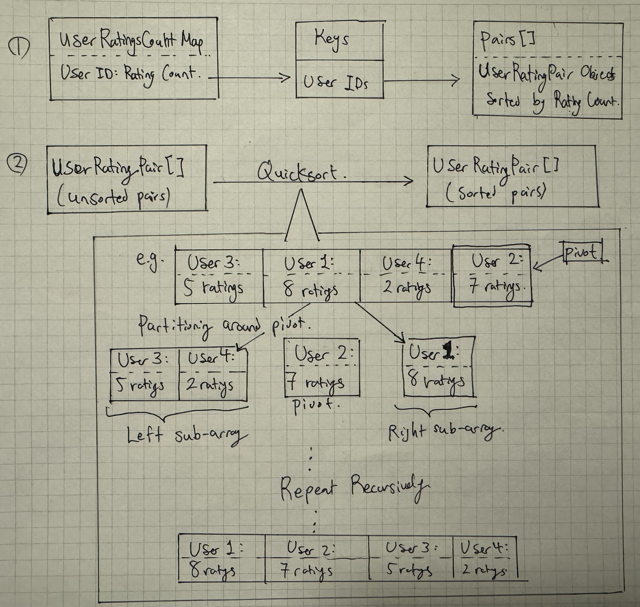 ①
User RatingsCount Map
User ID: Rating Count.
Keys
User IDs
Pairs []
UserRatingPair Objects
Sorted by Rating Count.
②
UserRatingPair []
(unsorted pairs)
Quicksort.
UserRatingPair []
(sorted pairs)
e.g.
User 3:
5 ratings
User 1:
8 ratings
User 4:
2 ratings
User 2:
7 ratings.
pivot
Partitioning around pivot.
User 3:
5 ratings
User 4:
2 ratings
User 2:
7 ratings
pivot.
User 1:
8 ratings
Left sub-array
Right sub-array.
Repeat Recursively
User 1:
8 ratings
User 2:
7 ratings
User 3:
5 ratings
User 4:
2 ratings